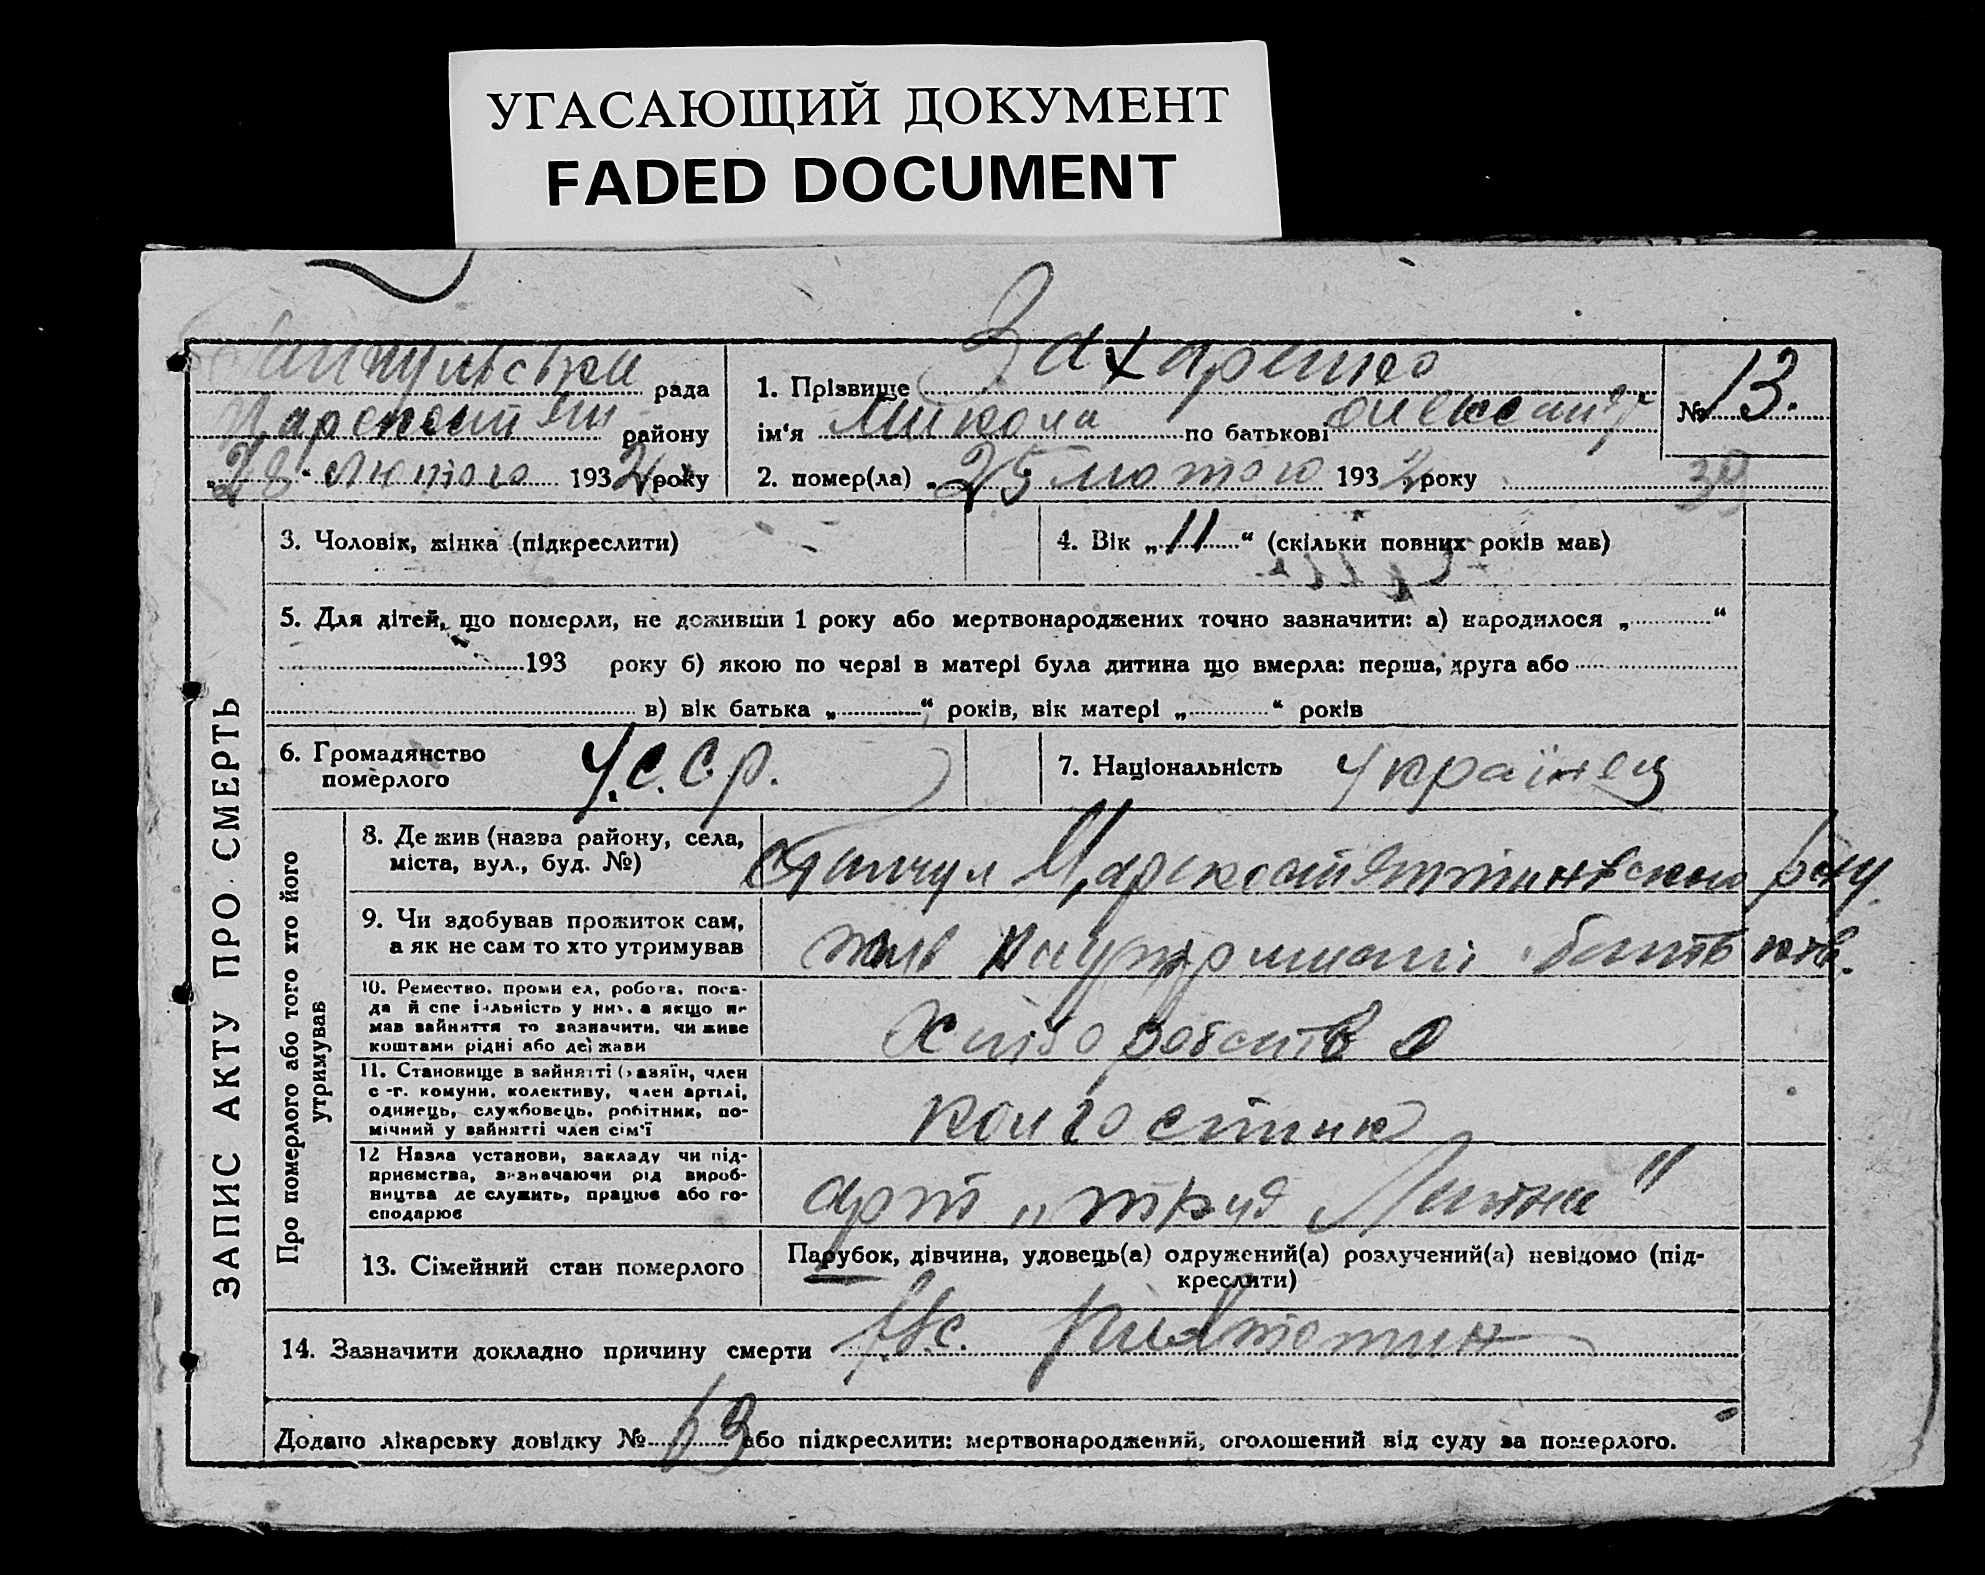 УГАСАЮЩИЙ ДОКУМЕНТ
FADED DOCUMENT
рада
району
„28“ Лютого 1932 року
1. Прізвище Захаренко
ім'я Микола по батькові Олександр
№ 13.
2. помер(ла) „25 лютого 1932 року
39
3. Чоловік, жінка (підкреслити)
4. Вік „11“ (скільки повних років мав)
5. Для дітей, що померли, не доживши 1 року або мертвонароджених точно зазначити: а) народилося „ “
193 року б) якою по черзі в матері була дитина що вмерла: перша, друга або
в) вік батька „ “ років, вік матері „ “ років
6. Громадянство
померлого
У.С.С.Р.
7. Національність Українец
ЗАПИС АКТУ ПРО СМЕРТЬ
Про померлого або того хто його
утримував
8. Де жив (назва району, села,
міста, вул., буд. №)
9. Чи здобував прожиток сам,
а як не сам то хто утримував
10. Ремество, промисел, робота, поса-
да й спеціяльність у них, а якщо не
мав зайняття то зазначити, чи живе
коштами рідні або держави
Хліборобство
11. Становище в зайнятті (хазяїн, член
с.-г. комуни, колективу, член артілі,
одинець, службовець, робітник, по-
мічний у зайнятті член сім'ї
колгоспник
12 Назва установи, закладу чи під-
приємства, зазначаючи рід вироб-
ництва де служить, працює або го-
сподарює
арт „труд
13. Сімейний стан померлого
Парубок, дівчина, удовець(а) одружений(а) розлучений(а) невідомо (під-
креслити)
14. Зазначити докладно причину смерти
Додано лікарську довідку № 13 або підкреслити: мертвонароджений, оголошений від суду за померлого.